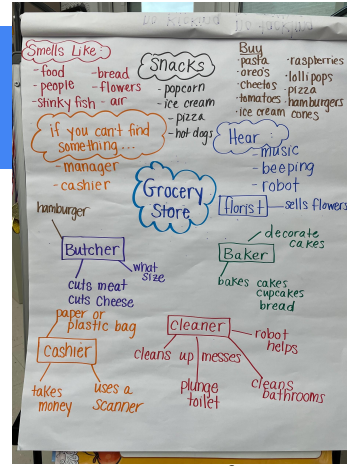 Smells Like:
- food
- people
- stinky fish
- bread
- flowers
- air
Snacks
- popcorn
- ice cream
- pizza
- hot dogs
Buy
· pasta
· oreo's
· cheetos
· tomatoes
· ice cream cones
· raspberries
· lollipops
· pizza
· hamburgers
if you can't find
something...
- manager
- cashier
Hear:
- music
- beeping
- robot
Grocery
Store
florist - sells flowers
hamburger
Butcher
what
size
cuts meat
cuts cheese
decorate
cakes
Baker
bakes cakes
cupcakes
bread
paper or
plastic bag
cashier
takes
money
uses a
scanner
cleaner
robot
helps
cleans up messes
plunge
toilet
cleans
bathrooms